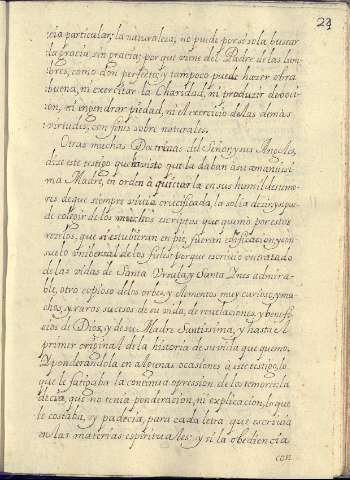 23
cia particular, la naturaleza, no puede por si sola buscar
la gracia, sin gracia; por que viene del Padre de las lum-
bres, como don perfecto, y tampoco puede hazer obra
buena, ni exercitar la Charidad, ni produzir devoci-
on, ni engendrar piedad, ni el exercicio de las demas
virtudes, con fines sobre naturales.
Otras muchas Doctrinas del Señor, y sus Angeles,
dize este testigo que ha visto que la daban à su amantisi-
ma Madre, en orden à quietarla en sus humildes temo-
res, de que siempre vivia crucificada, la solia dezir, y se pue-
de colegir de los muchos escriptos que quemo por estos
rezelos, que si estubieran en pie, fueran edificacion, y con-
suelo universal de los fieles, porque escribio un tratado
de las vidas de Santa Ursula, y Santa Ynes admira-
ble, otro copioso de los orbes, y elementos muy curioso, y mu-
chos, y raros sucesos de su vida, de revelaciones, y benefi-
cios de Dios, y de su Madre Santissima, y hasta el
primer original de la historia de su vida que quemo.
Y ponderandola en algunas ocasiones à este testigo, lo
que le fatigaba la continua opresion de los temores, la
decia, que no tenia ponderacion, ni explicacion, lo que
le costaba, y padecia, para cada letra que escrivia
en las materias espirituales: y si la obediencia
con